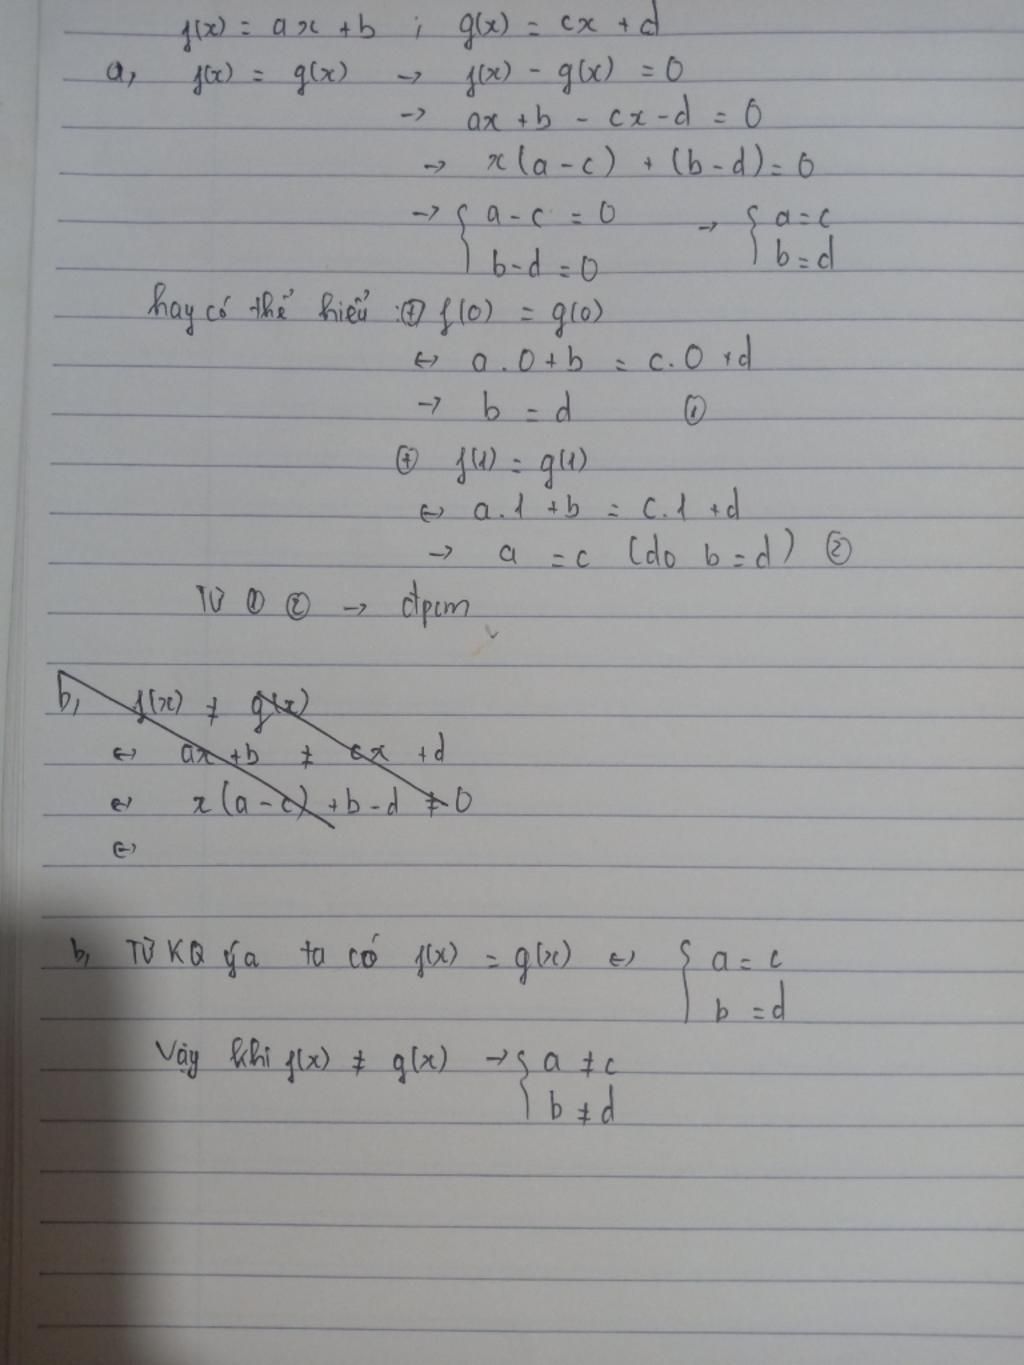 f(x) = ax + b ; g(x) = cx + d
a, f(x) = g(x) → f(x) - g(x) = 0
→ ax + b - cx - d = 0
→ x(a - c) + (b - d) = 0
→ { a - c = 0 → { a = c
b - d = 0 b = d
hay có thể hiểu : ⊕ f(0) = g(0)
↔ a . 0 + b = c . 0 + d
→ b = d ①
⊕ f(1) = g(1)
↔ a . 1 + b = c . 1 + d
→ a = c (do b = d) ②
Từ ① ② → đpcm
b, f(x) ≠ g(x)
↔ ax + b ≠ cx + d
↔ x(a - c) + b - d ≠ 0
↔
b, Từ KQ ýa ta có f(x) = g(x) ↔ { a = c
b = d
Vậy khi f(x) ≠ g(x) → { a ≠ c
b ≠ d